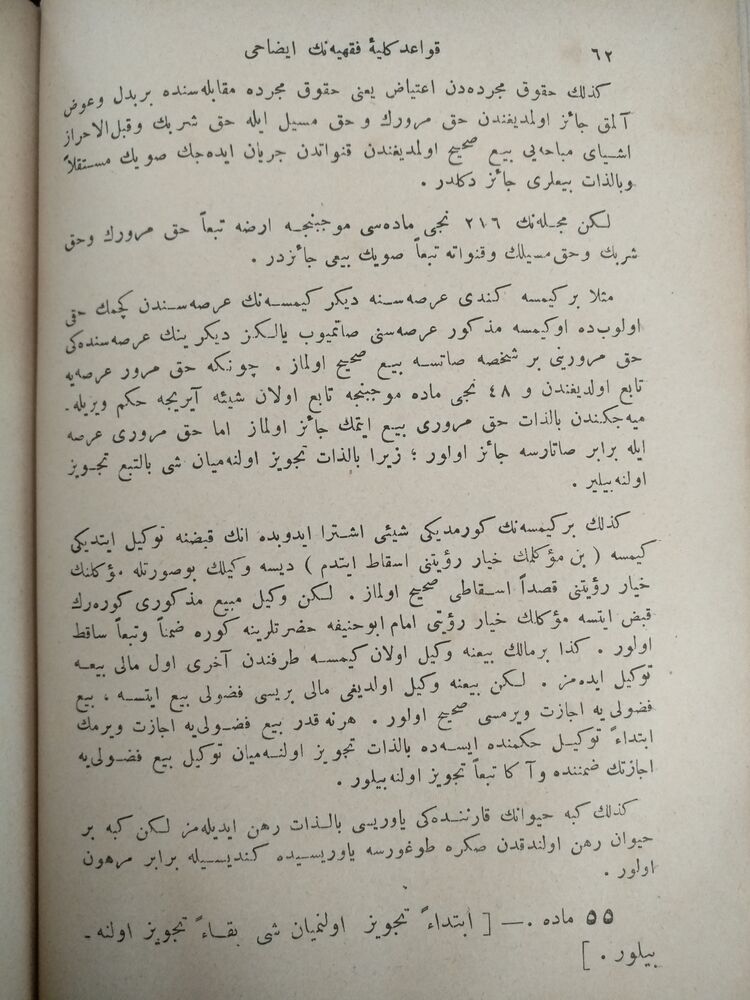 ٦٢
قواعد كلیۀ فقهیه‌نك ایضاحی
كذلك حقوق مجرده‌دن اعتیاض یعنی حقوق مجرده مقابله‌سنده بر بدل وعوض
آلمق جائز اولمدیغندن حق مرورك و حق مسیل ایله حق شربك وقبل الاحراز
اشیای مباحه‌یی بیع صحیح اولمدیغندن قنواتدن جریان ایده‌جك صویك مستقلاً
وبالذات بیعلری جائز دكلدر .
لكن مجله‌نك ٢١٦ نجی ماده‌سی موجبنجه ارضه تبعاً حق مرورك وحق
شربك وحق مسیلك وقنواته تبعاً صویك بیعی جائزدر .
مثلا بر كیمسه كندی عرصه‌سنه دیكر كیمسه‌نك عرصه‌سندن كچمك حقی
اولوب‌ده اوكیمسه مذكور عرصه‌سنی صاتمیوب یالكز دیكر ینك عرصه‌سنده‌كی
حق مرورینی بر شخصه صاتسه بیع صحیح اولماز . چونكه حق مرور عرصه‌یه
تابع اولدیغندن و ٤٨ نجی ماده موجبنجه تابع اولان شیئه آیریجه حكم ویریله-
میه‌جكندن بالذات حق مروری بیع ایتمك جائز اولماز اما حق مروری عرصه
ایله برابر صاتارسه جائز اولور ؛ زیرا بالذات تجویز اولنه‌میان شی بالتبع تجویز
اولنه‌بیلیر .
كذلك بر كیمسه‌نك كورمدیكی شیئی اشترا ایدوبده انك قبضنه توكیل ایتدیكی
كیمسه ( بن مؤكلمك خیار رؤیتنی اسقاط ایتدم ) دیسه وكیلك بوصورتله مؤكلنك
خیار رؤیتنی قصداً اسقاطی صحیح اولماز . لكن وكیل مبیع مذكوری كوره‌رك
قبض ایتسه مؤكلك خیار رؤیتی امام ابوحنیفه حضرتلرینه كوره ضمناً وتبعاً ساقط
اولور . كذا بر مالك بیعنه وكیل اولان كیمسه طرفندن آخری اول مالی بیعه
توكیل ایده‌مز . لكن بیعنه وكیل اولدیغی مالی بریسی فضولی بیع ایتسه ، بیع
فضولی‌یه اجازت ویرمسی صحیح اولور . هرنه‌قدر بیع فضولی‌یه اجازت ویرمك
ابتداءً توكیل حكمنده ایسه‌ده بالذات تجویز اولنه‌میان توكیل بیع فضولی‌یه
اجازتك ضمننده وآ كا تبعاً تجویز اولنه‌بیلور .
كذلك كبه حیوانك قارننده‌كی یاوریسی بالذات رهن ایدیله‌مز لكن كبه بر
حیوان رهن اولندقدن صكره طوغورسه یاوریسیده كندیسیله برابر مرهون
اولور .
٥٥ ماده .— [ ابتداءً تجویز اولنمیان شی بقاءً تجویز اولنه-
بیلور . ]